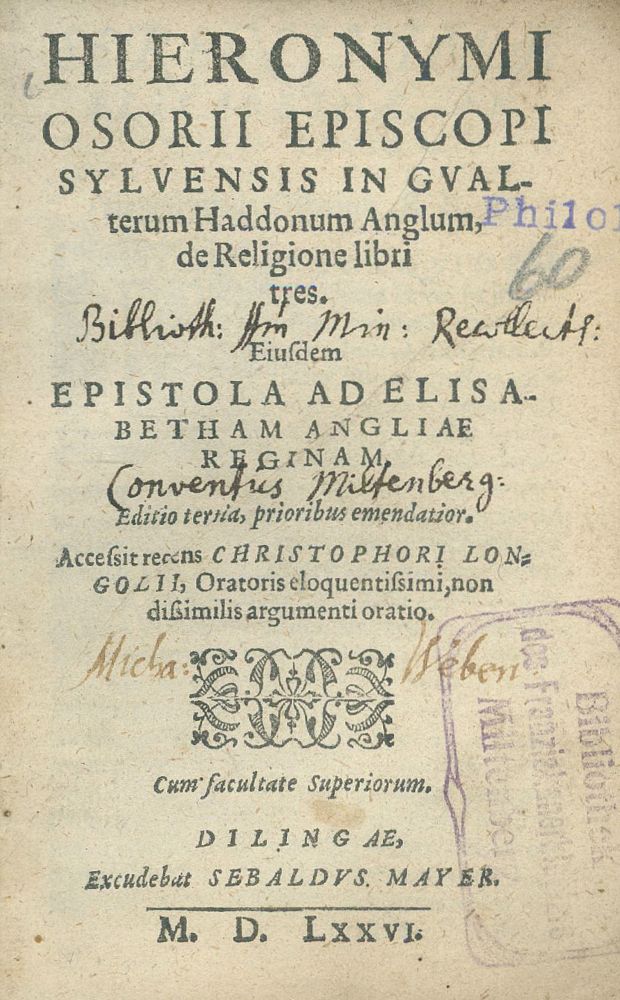 HIERONYMI
OSORII EPISCOPI
SYLVENSIS IN GVAL-
terum Haddonum Anglum,
Philol
de Religione libri
60
tres.
Biblioth: Min: Recollect:
Eiuſdem
EPISTOLA AD ELISA-
BETHAM ANGLIAE
REGINAM
Conventus Miltenberg:
Editio tertia, prioribus emendatior.
Acceſsit recens CHRISTOPHORI LON-
GOLII, Oratoris eloquentiſsimi, non
diſsimilis argumenti oratio.
Micha: Weben
Bibliotek
des
Miltenber
Cum facultate Superiorum.
DILINGAE,
Excudebat SEBALDVS MAYER.
M. D. LXXVI.